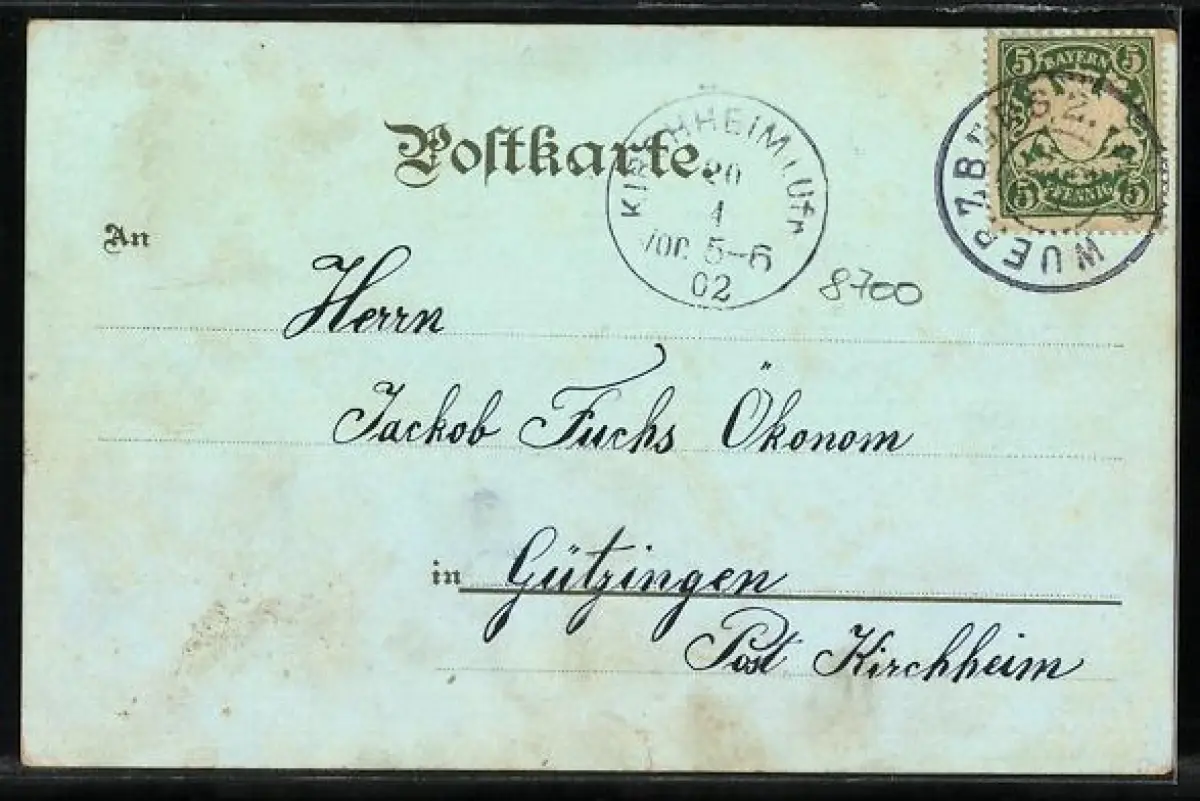 Postkarte.
5 BAYERN 5
5 PFENNIG 5
KIRCHHEIM I. Ufr.
20
4
Vor. 5-6
02
WUERZB
An
8700
Herrn
Jackob Fuchs Ökonom
in Gützingen
Post Kirchheim